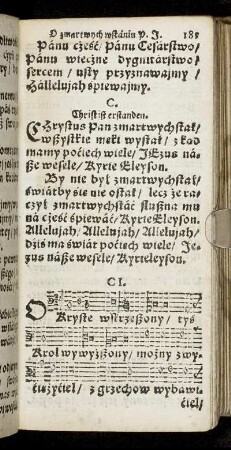 O zmartwych wstániu P. J. 185
Pánu cześć/ Pánu Cesárstwo/
Pánu wieczne dygnitárstwo/
sercem/ usty przyznawajmy/
Hállelujáh śpiewajmy.
C.
Christ ist erstanden.
CHrystus Pan zmartwychstał/
wszystkie męki wystał/ z kąd
mamy pociech wiele/ JEzus ná-
sze wesele/ Kyrie Eleyson.
By nie był zmartwychstał/
świátby się nie ostał/ lecz że rá-
czył zmartwychstáć słuszna mu
ná cześć śpiewáć/ Kyrie Eleyson.
Allelujah/ Allelujah/ Allelujah/
dziś ma świát pociech wiele/ Je-
zus násze wesele/ Kyrieleyson.
CI.
O Kryste wskrzeszony/ tyś
Krol wywyższony/ możny zwy-
ciężyciel/ z grzechow wybáwi-
ciel/